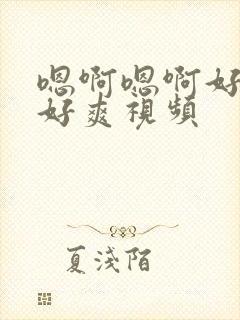 嗯啊嗯啊好
好爽視頻
夏淺陌